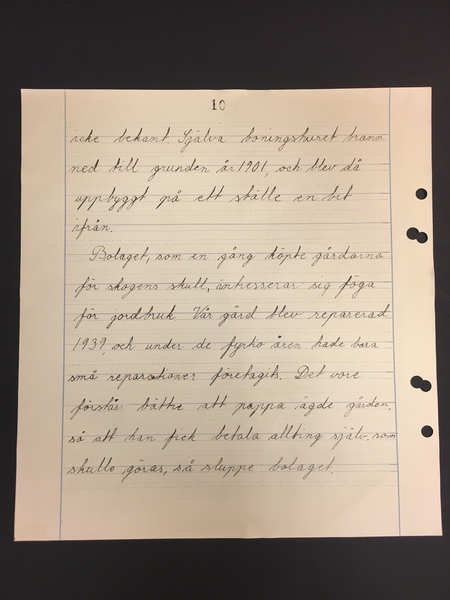 10
icke bekant. Själva boningshuset brann
ned till grunden år 1901, och blev då
uppbyggt på ett ställe en bit
ifrån.
Bolaget, som en gång köpte gårdarna
för skogens skull, intresserar sig föga
för jordbruk. Vår gård blev reparerad
1939, och under de fyrtio åren hade bara
små reparationer företagits. Det vore
förstås bättre att pappa ägde gården,
så att han fick betala allting själv, som
skulle göras, så sluppe bolaget.